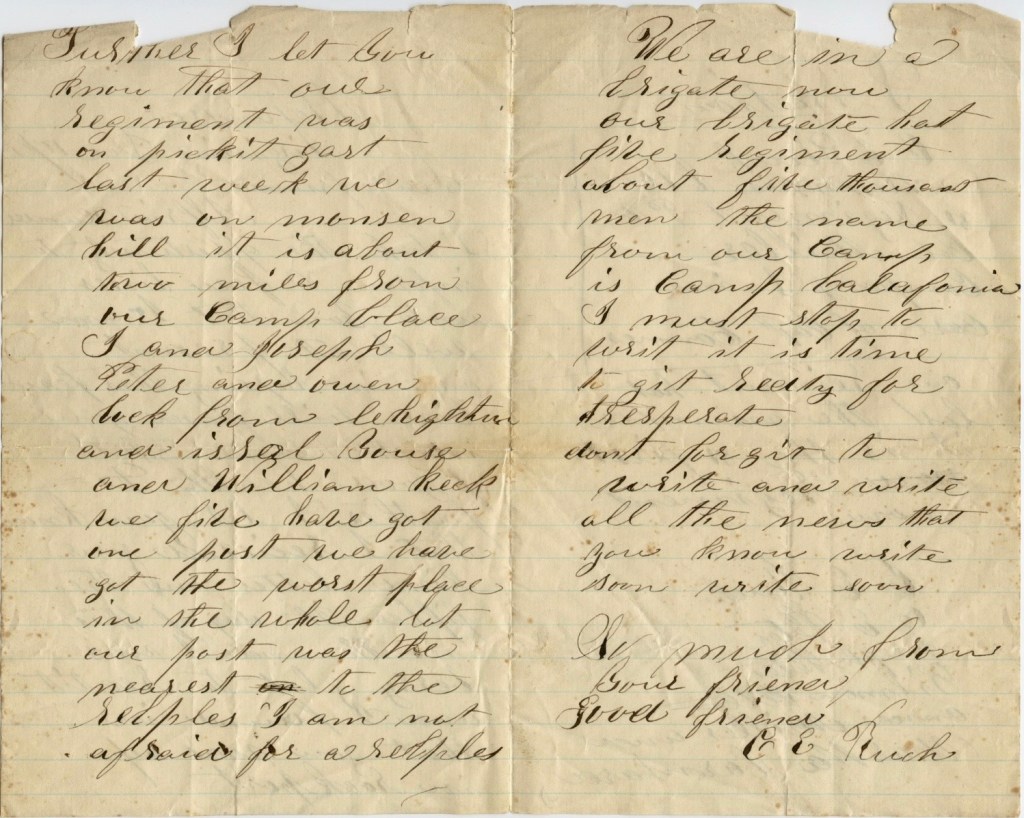 Further I let you
know that our
regiment was
on pickit gart
last week we
was on monsen
hill it is about
two miles from
our Camp blace
I and Joseph
Peter and owen
lick from lehighton
and isral Bouse
and William keck
we five have got
one post we have
got the worst place
in the whole lot
our post was the
nearest on to the
relples I am not
afraid for a relples
We are in a
brigate now
our brigate hat
five regiment
about five thousant
men the name
from our Camp
is Camp Calafonia
I must stop to
writ it is time
to git redty for
tresperate
dont forgit to
write and write
all the news that
you know write
soon write soon
So much from
Your friend
Good friend
C E Ruch